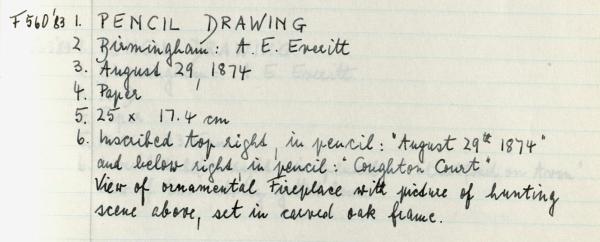 F560'83 1. PENCIL DRAWING
2 Birmingham: A. E. Everitt
3. August 29, 1874
4. Paper
5. 25 x 17.4 cm
6. Inscribed top right, in pencil: "August 29th 1874"
and below right, in pencil: "Coughton Court"
View of ornamental Fireplace with picture of hunting
scene above, set in carved oak frame.